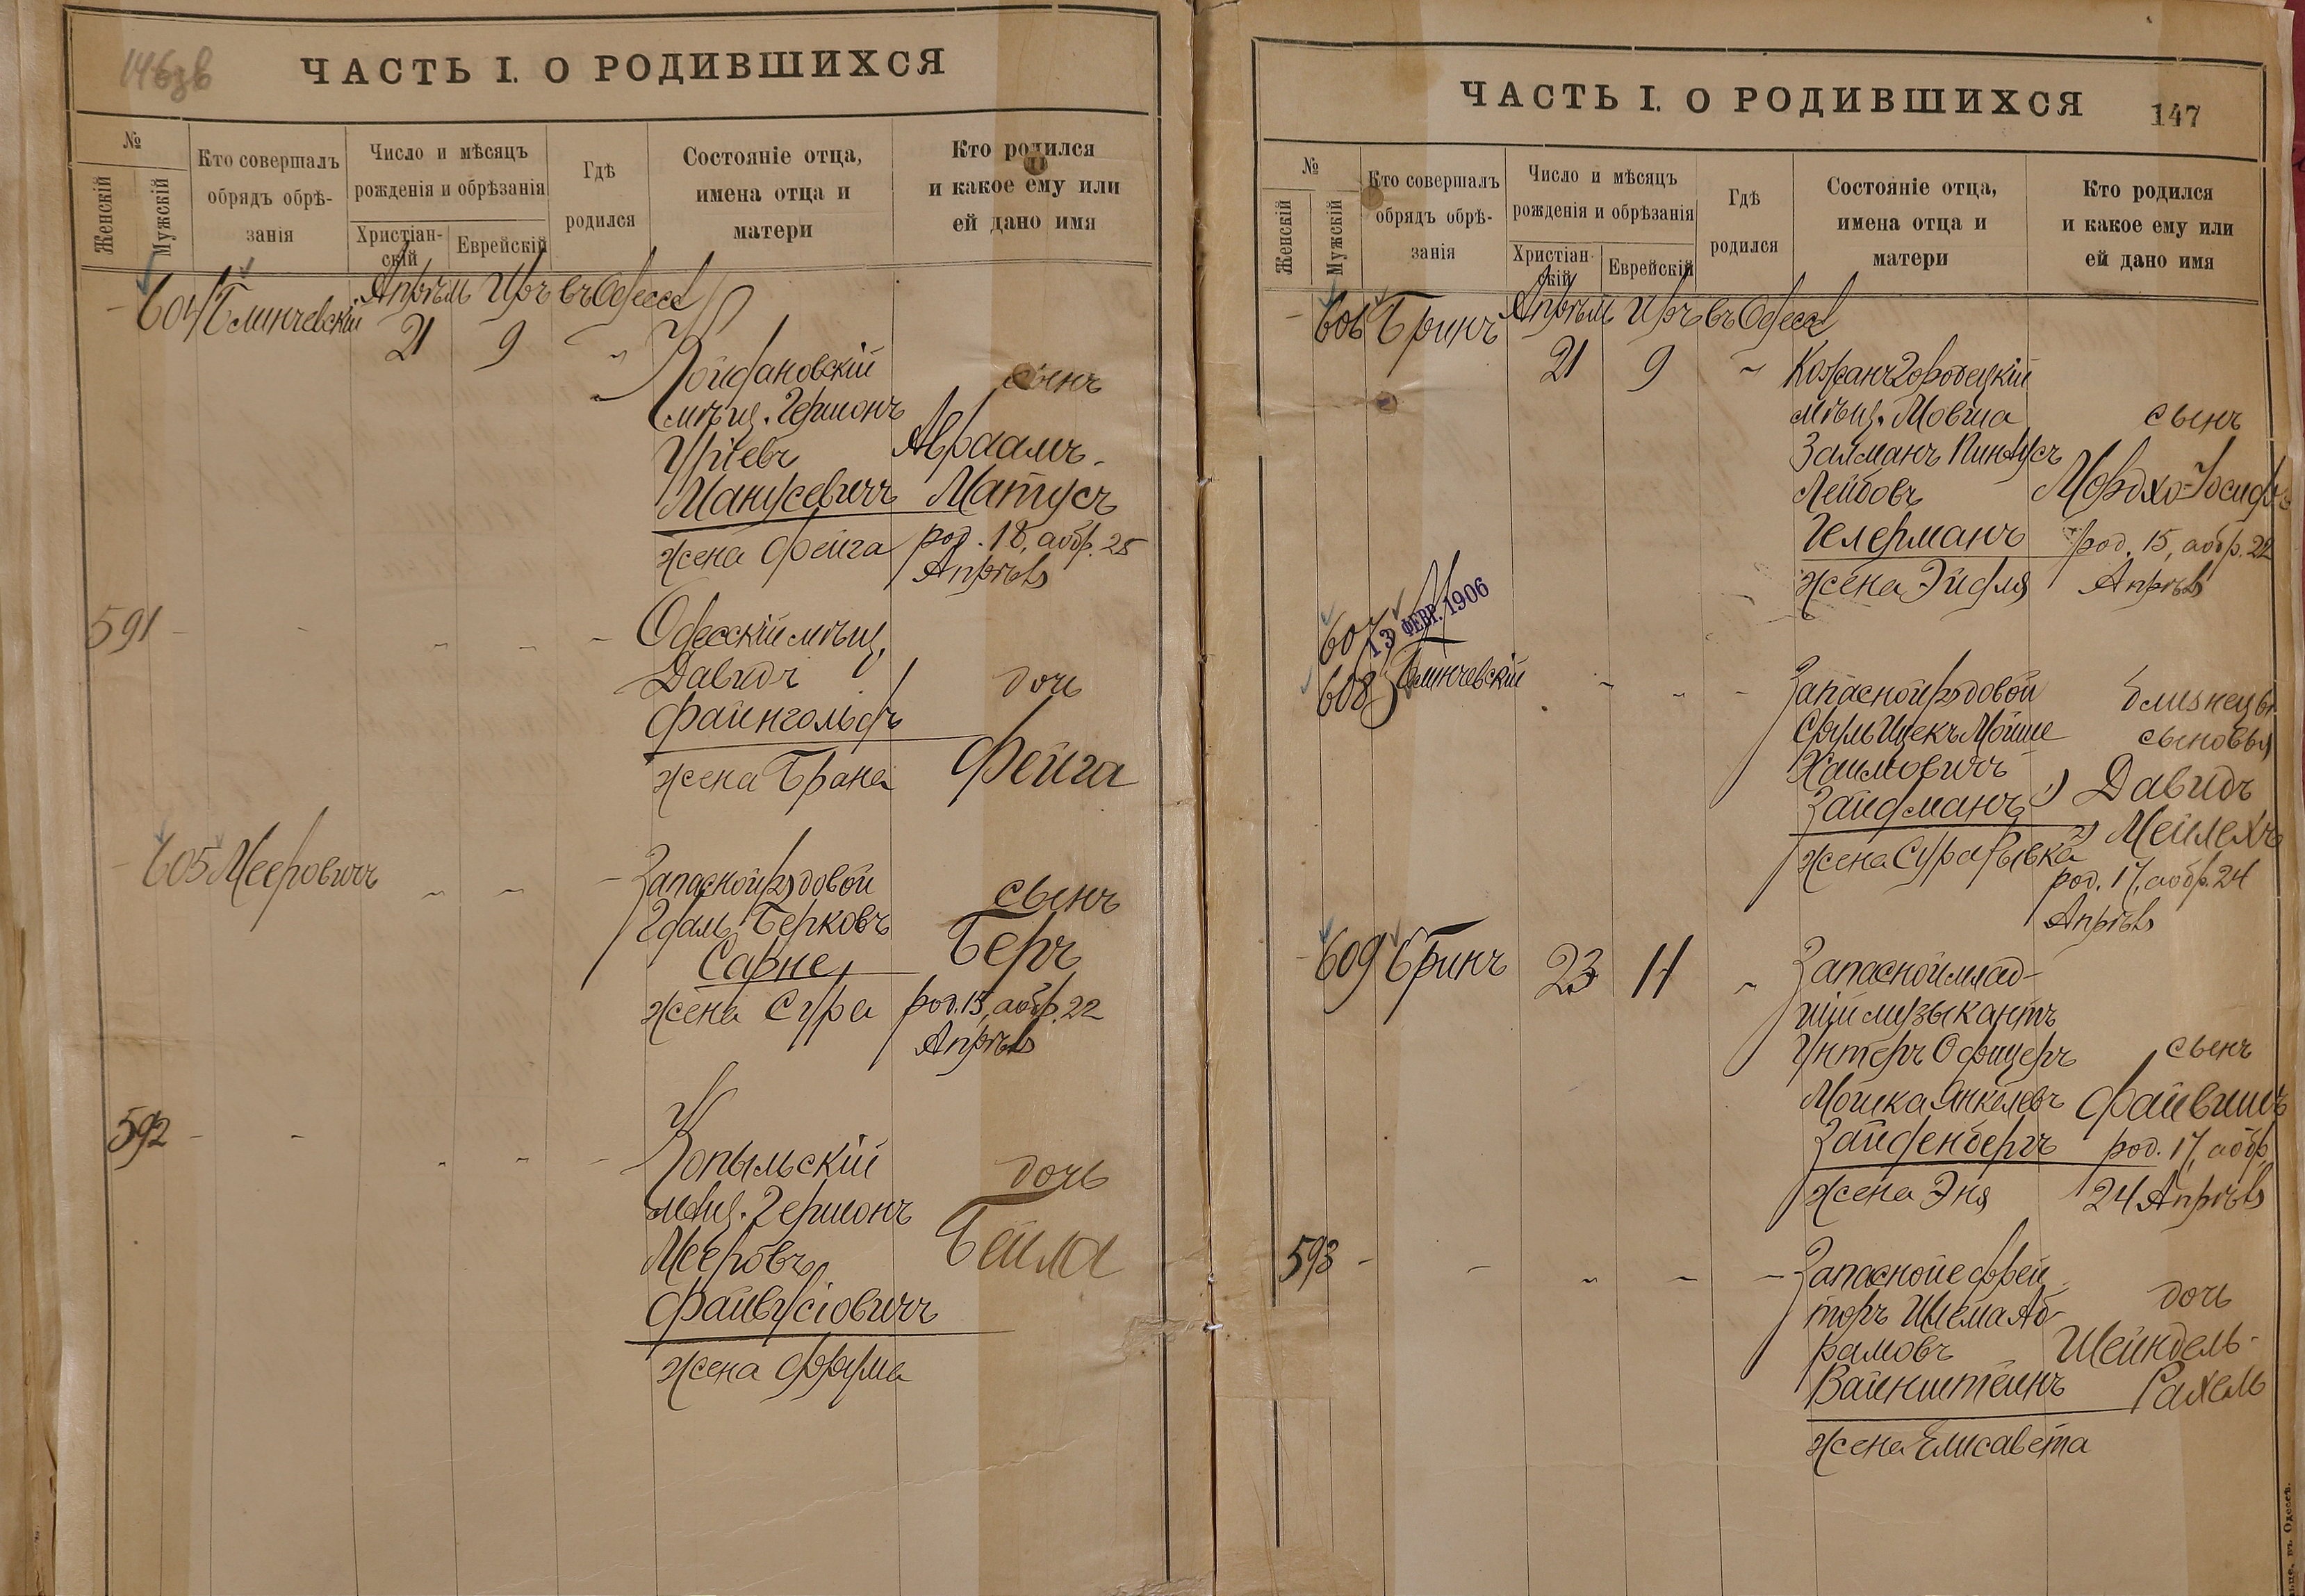 146зв
ЧАСТЬ I. О РОДИВШИХСЯ
№
Женскій
Мужскій
Кто совершалъ
обрядъ обрѣ-
занія
Число и мѣсяцъ
рожденія и обрѣзанія
Христіан-
скій
Еврейскій
Гдѣ
родился
Состояніе отца,
имена отца и
матери
Кто родился
и какое ему или
ей дано имя
604 Блинчевскій
Апрѣль Иръ въ Одессѣ
21 9
Койдановскій
мѣщ. Гершонъ
Уріевъ
Манусевичъ
жена Фейга
сынъ
Авраамъ-
Матусъ
род. 18, аобр. 25
Апрѣля
591
Одесскій мѣщ.
Давидъ
Файнгольдъ
жена Брана
дочь
Фейга
605 Мееровичъ
Запасной рядовой
Гдаль Берковъ
Сарне
жена Сура
сынъ
Беръ
род. 15, аобр. 22
Апрѣля
592
Копыльскій
мѣщ. Гершонъ
Мееровъ
Файвусіовичъ
жена Фрума
дочь
Бейла
ЧАСТЬ I. О РОДИВШИХСЯ
147
№
Женскій
Мужскій
Кто совершалъ
обрядъ обрѣ-
занія
Число и мѣсяцъ
рожденія и обрѣзанія
Христіан-
скій
Еврейскій
Гдѣ
родился
Состояніе отца,
имена отца и
матери
Кто родился
и какое ему или
ей дано имя
606 Бринъ
Апрѣль Иръ въ Одессѣ
21 9
Кожанъ Городецкій
мѣщ. Мовша
Залманъ Пинкусъ
Лейбовъ
Гелерманъ
жена Эйдля
сынъ
Мордхо-Іосифъ
род. 15, аобр. 22
Апрѣля
607
13 ФЕВР. 1906
608 Блинчевскій
Запасной рядовой
Сруль Ицекъ Мойше
Хаимовичъ
Зайдманъ
жена Сура Рывка
близнецы
сыновья
1) Давидъ
2) Мейлехъ
род. 17, аобр. 24
Апрѣля
609 Бринъ
23 11
Запасной млад-
шій музыкантъ
Унтеръ Офицеръ
Мошка Янкелевъ
Зайденбергъ
жена Эня
сынъ
Файвишъ
род. 17, аобр.
24 Апрѣля
593
Запасной ефрей
торъ Шлема Аб-
рамовъ
Вайнштейнъ
жена Елисавета
дочь
Шейндель-
Рахель
въ Одессѣ.